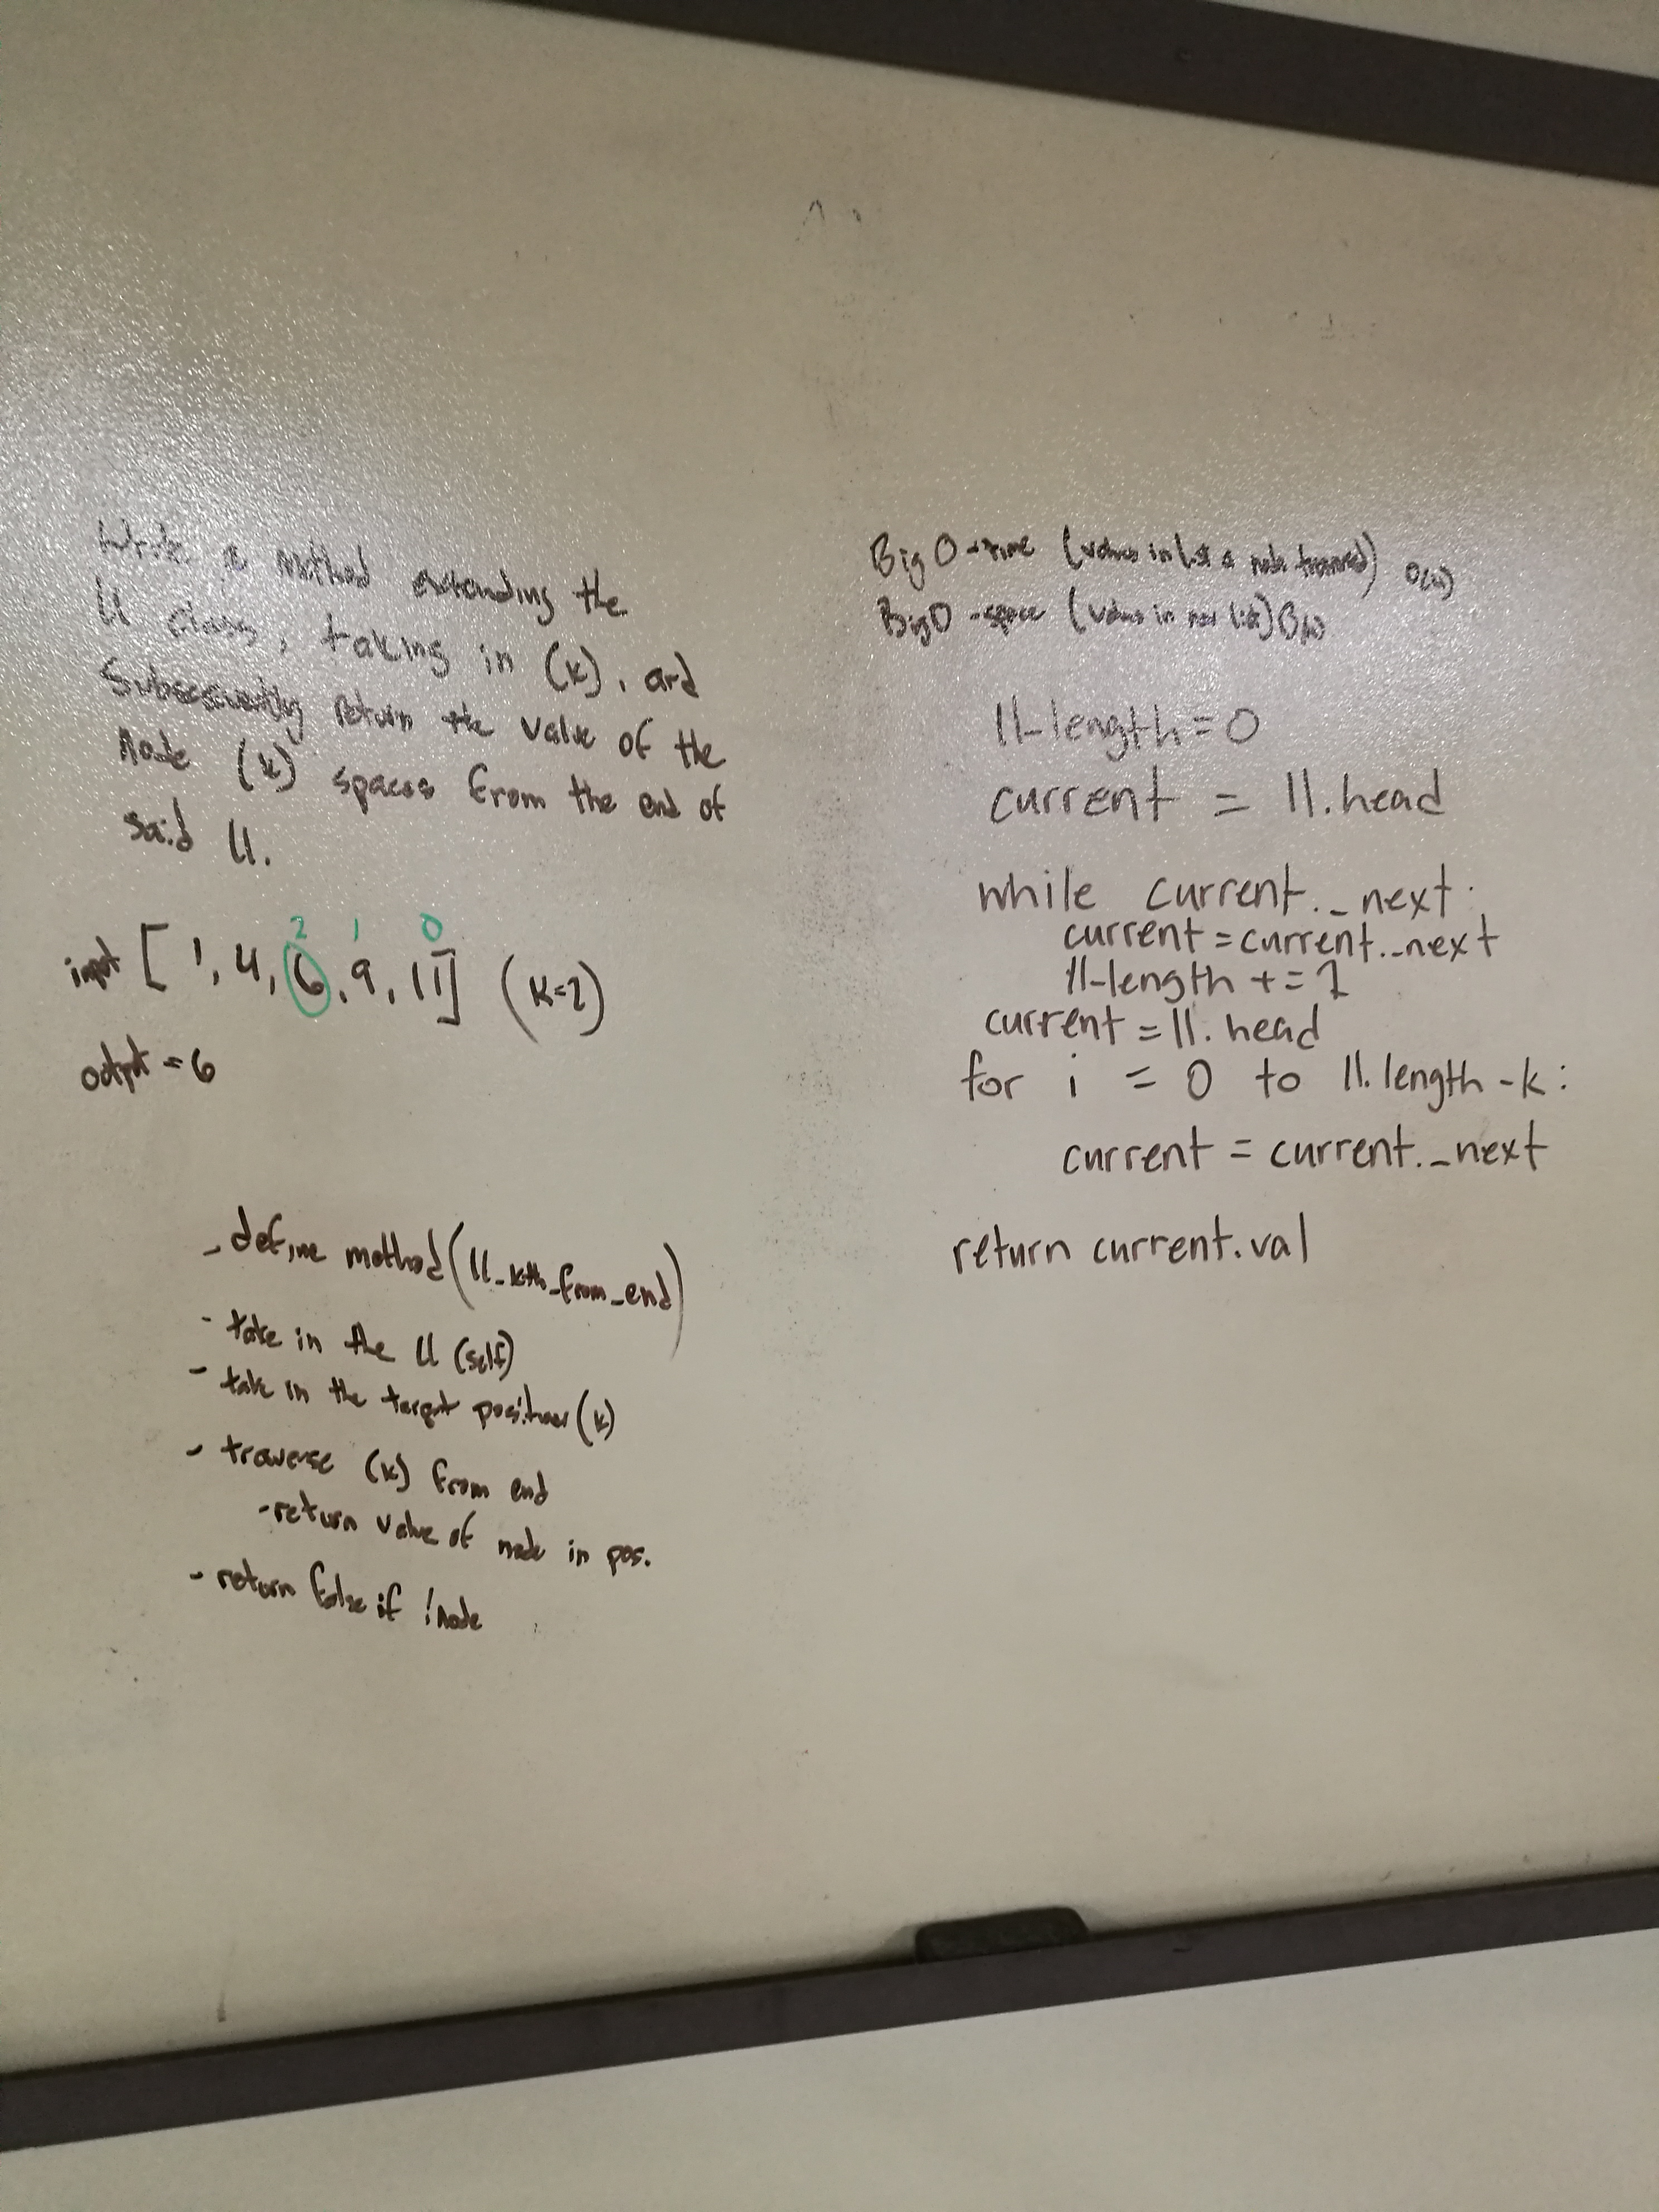 Write a method extending the
ll class, taking in (k), and
Subsequently return the value of the
node (k) spaces from the end of
said ll.
2 1 0
input [ 1, 4, 6, 9, 11] (k=2)
output = 6
- define method (ll_kth_from_end)
- take in the ll (self)
- take in the target position (k)
- traverse (k) from end
- return value of node in pos.
- return false if !node
Big O - time (values in list & node traversed) O(n)
Big O - space (values in new list)
ll-length = 0
current = ll.head
while current._next:
current = current._next
ll-length += 1
current = ll.head
for i = 0 to ll.length - k:
current = current._next
return current.val